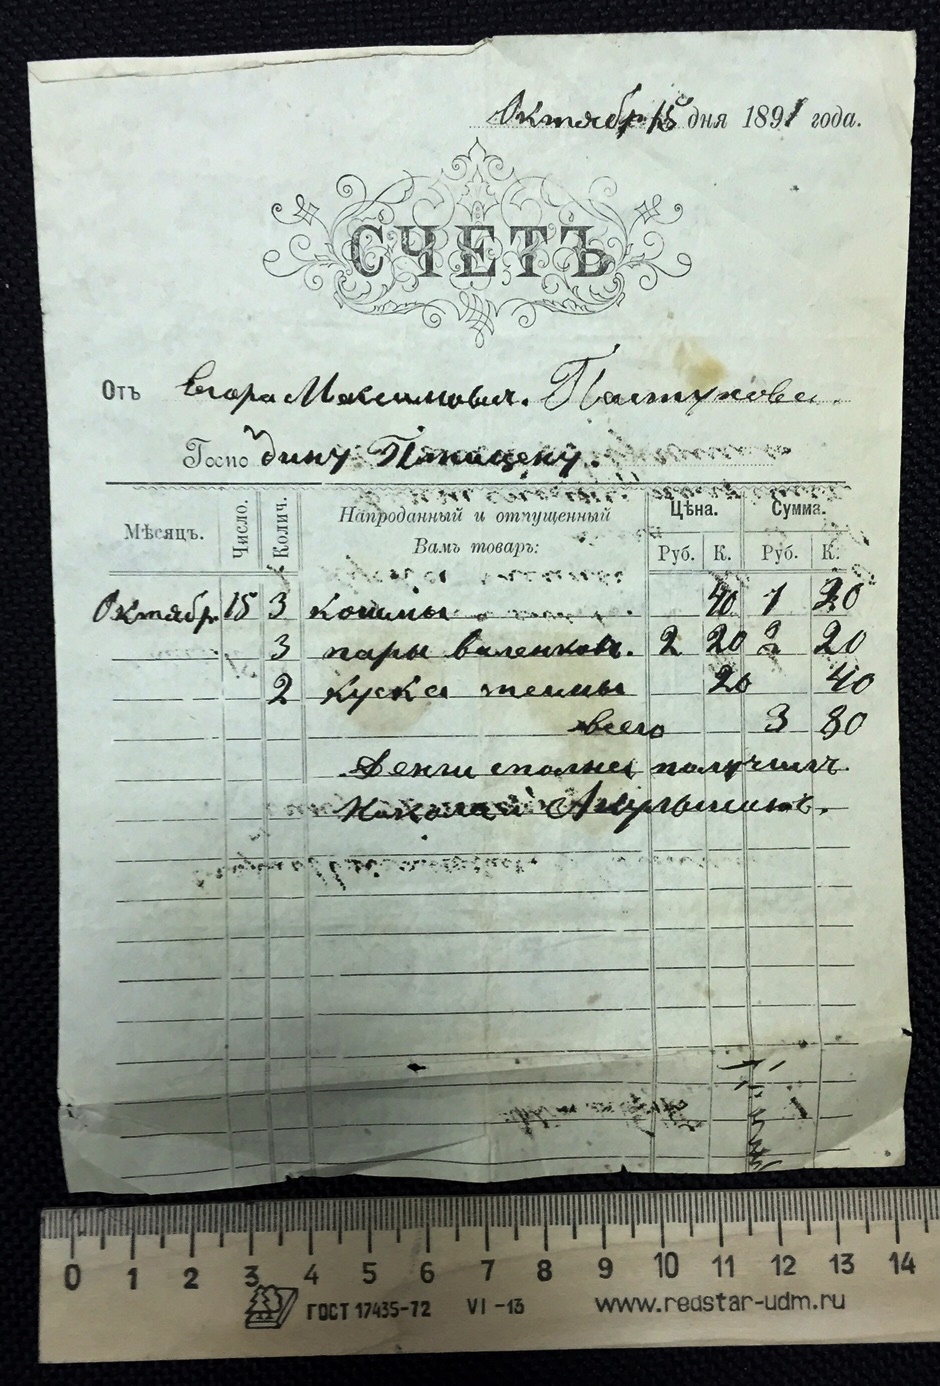 Октябр 15 дня 1891 года.
СЧЕТЪ
Отъ Егора Максимович. Пастухова.
Господину
Мѣсяцъ. Число. Колич. Напроданный и отпущенный Вамъ товаръ: Цѣна. Сумма.
Руб. К. Руб. К.
Октябр. 15 3 кошмы 40 1 20
3 пары валенков. 2 20 2 20
2 куска тесмы 20 40
всего 3 80
Денги сполна получилъ
Николай
0 1 2 3 4 5 6 7 8 9 10 11 12 13 14
ГОСТ 17435-72 VI-13 www.redstar-udm.ru